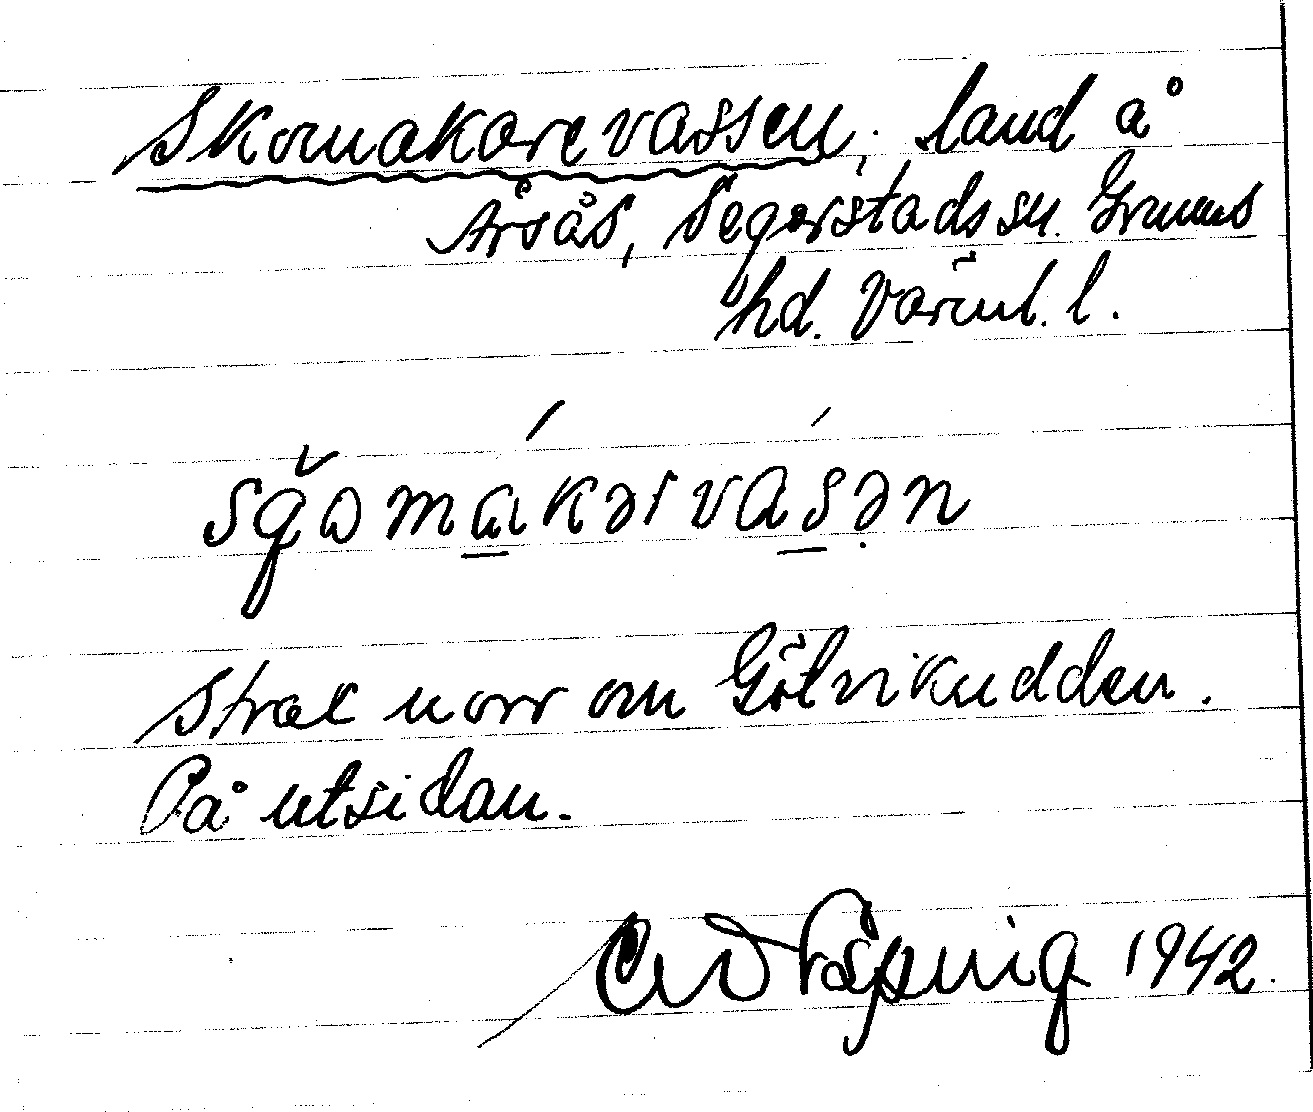 Skomakarevassen, land å
Årsås, Segerstads sn. Grums
hd. Värml. l.
sgωmakərvasən
Strax norr om Götvikudden.
På utsidan.
1942.